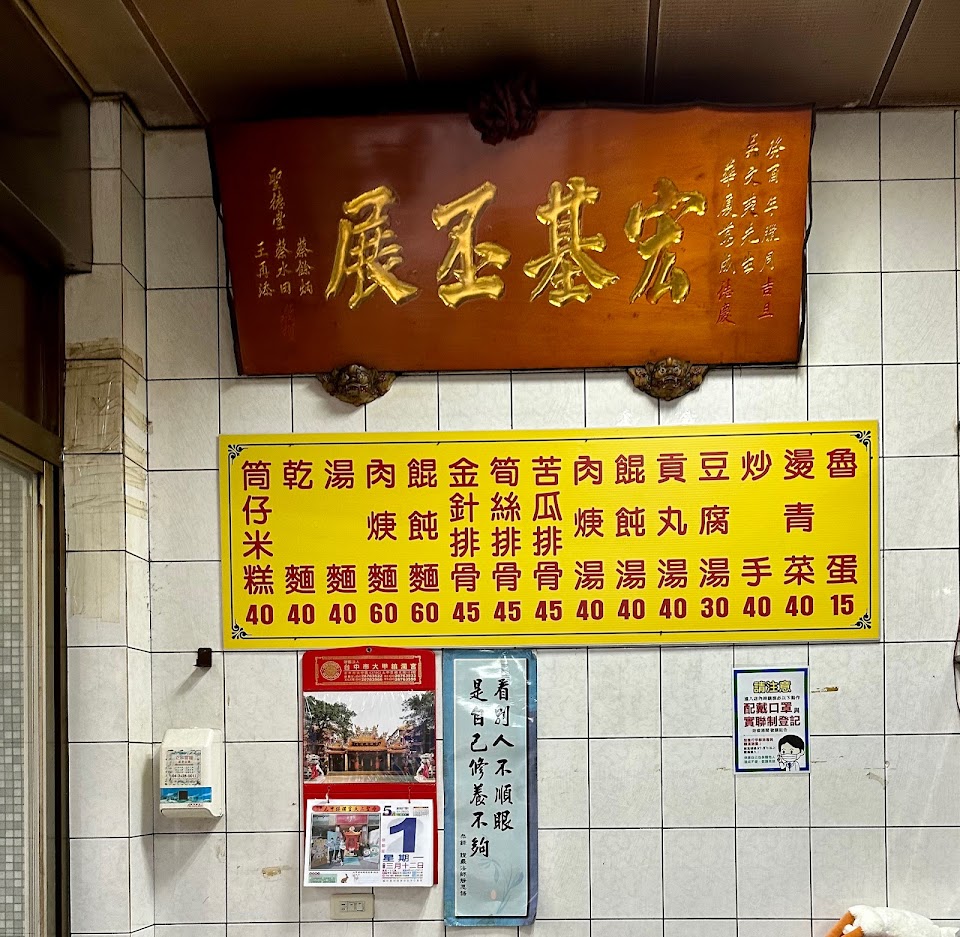 宏基丕展
癸酉年
吉旦
聖德堂
蔡水田
筒仔米糕 40
乾麵 40
湯麵 40
肉焿麵 60
餛飩麵 60
金針排骨 45
筍絲排骨 45
苦瓜排骨 45
肉焿湯 40
餛飩湯 40
貢丸湯 40
豆腐湯 30
炒手 40
燙青菜 40
魯蛋 15
台中市大甲鎮瀾宮
5
1
星期一
三月十二日
看別人不順眼
是自己修養不夠
請注意
配戴口罩與
實聯制登記